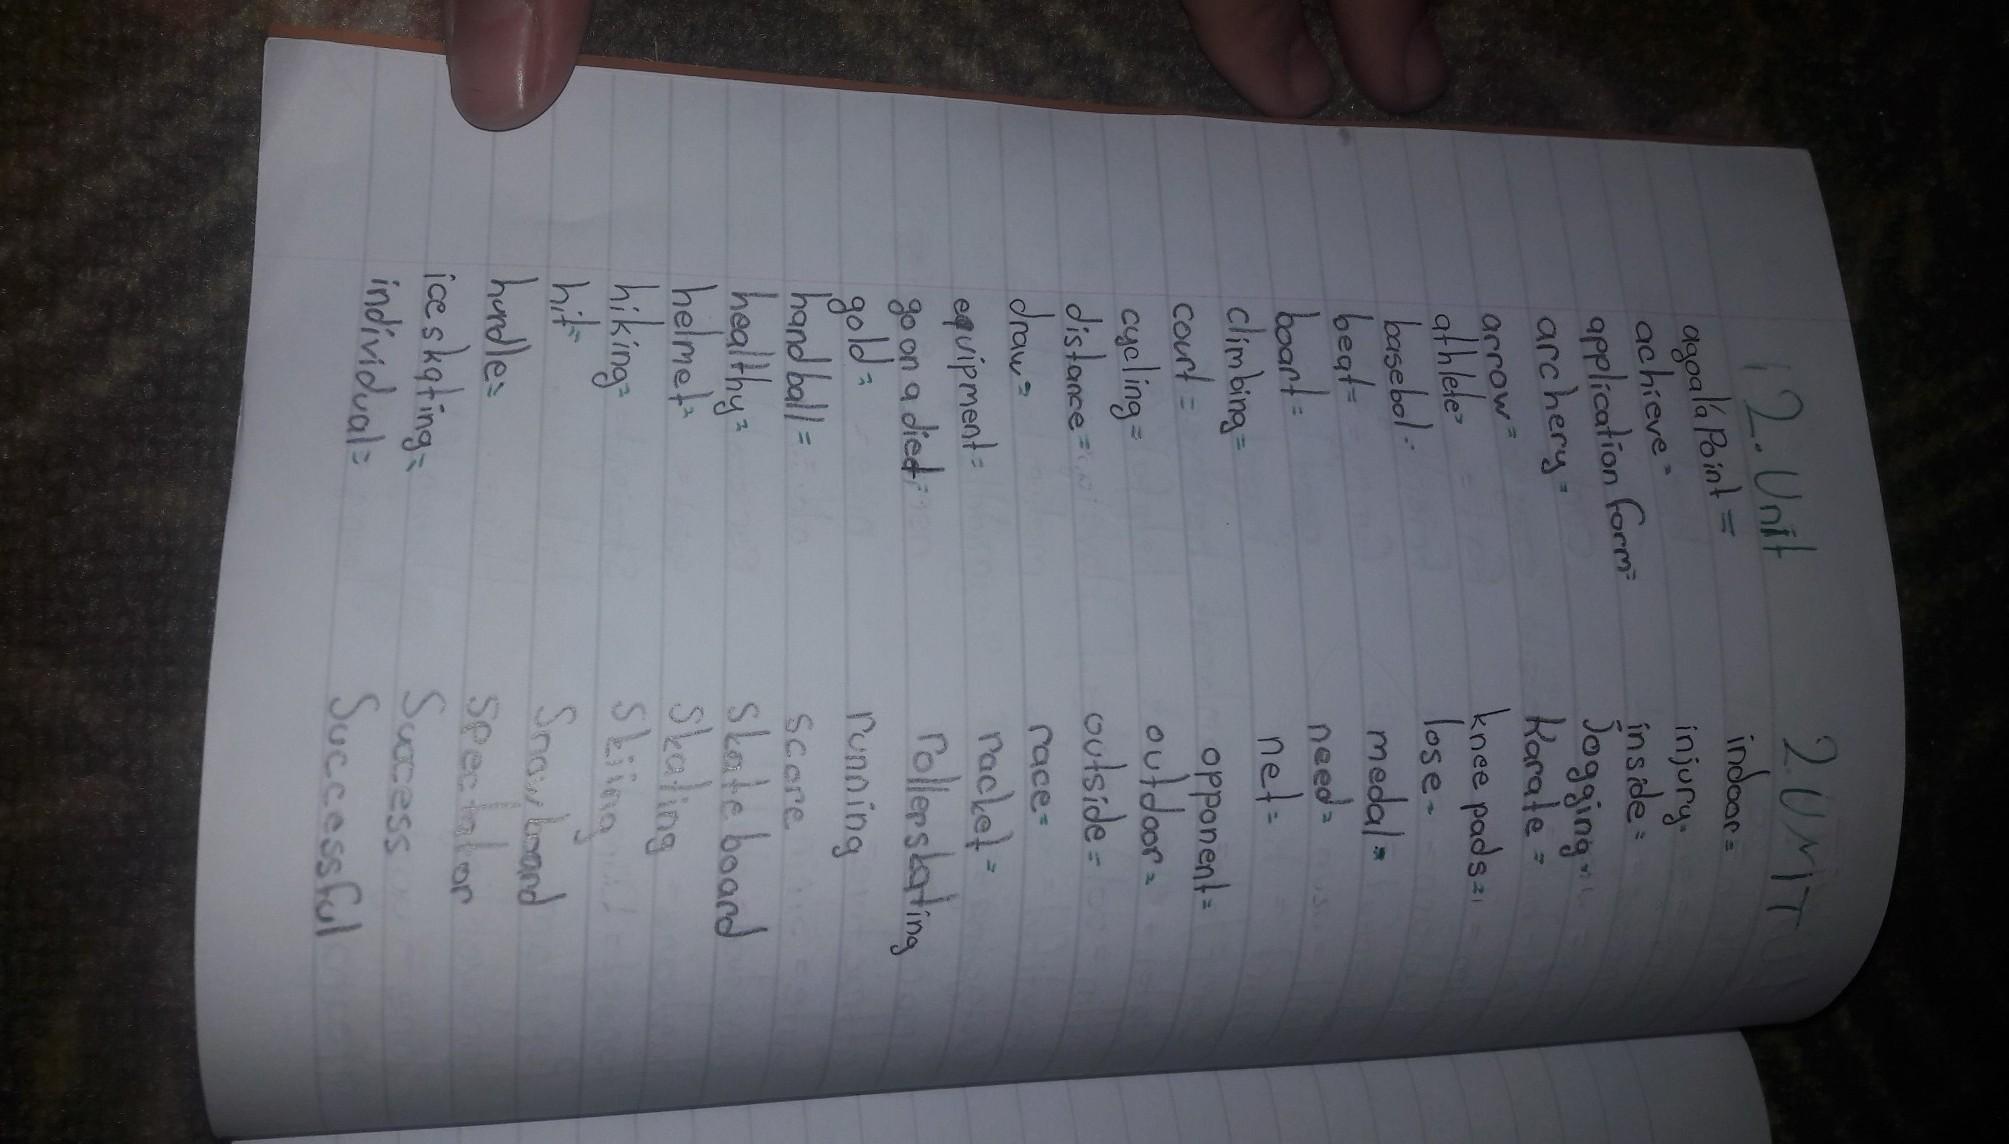 2. Unit
agoal/a Point =
achieve =
application form =
archery =
arrow =
athlete =
basebol =
beat =
boart =
climbing =
court =
cycling =
distance =
draw =
equipment =
go on a diet =
gold =
hand ball =
healthy =
helmet =
hiking =
hit =
hurdle =
ice skating =
individual =
2. UNIT
indoor =
injury =
inside =
Jogging =
Karate =
knee pads =
lose =
medal =
need =
net =
opponent =
outdoor =
outside =
race =
racket =
rollerskating
running
score
Skate board
Skating
Skiing
Snowboard
Spectator
Success
Successful